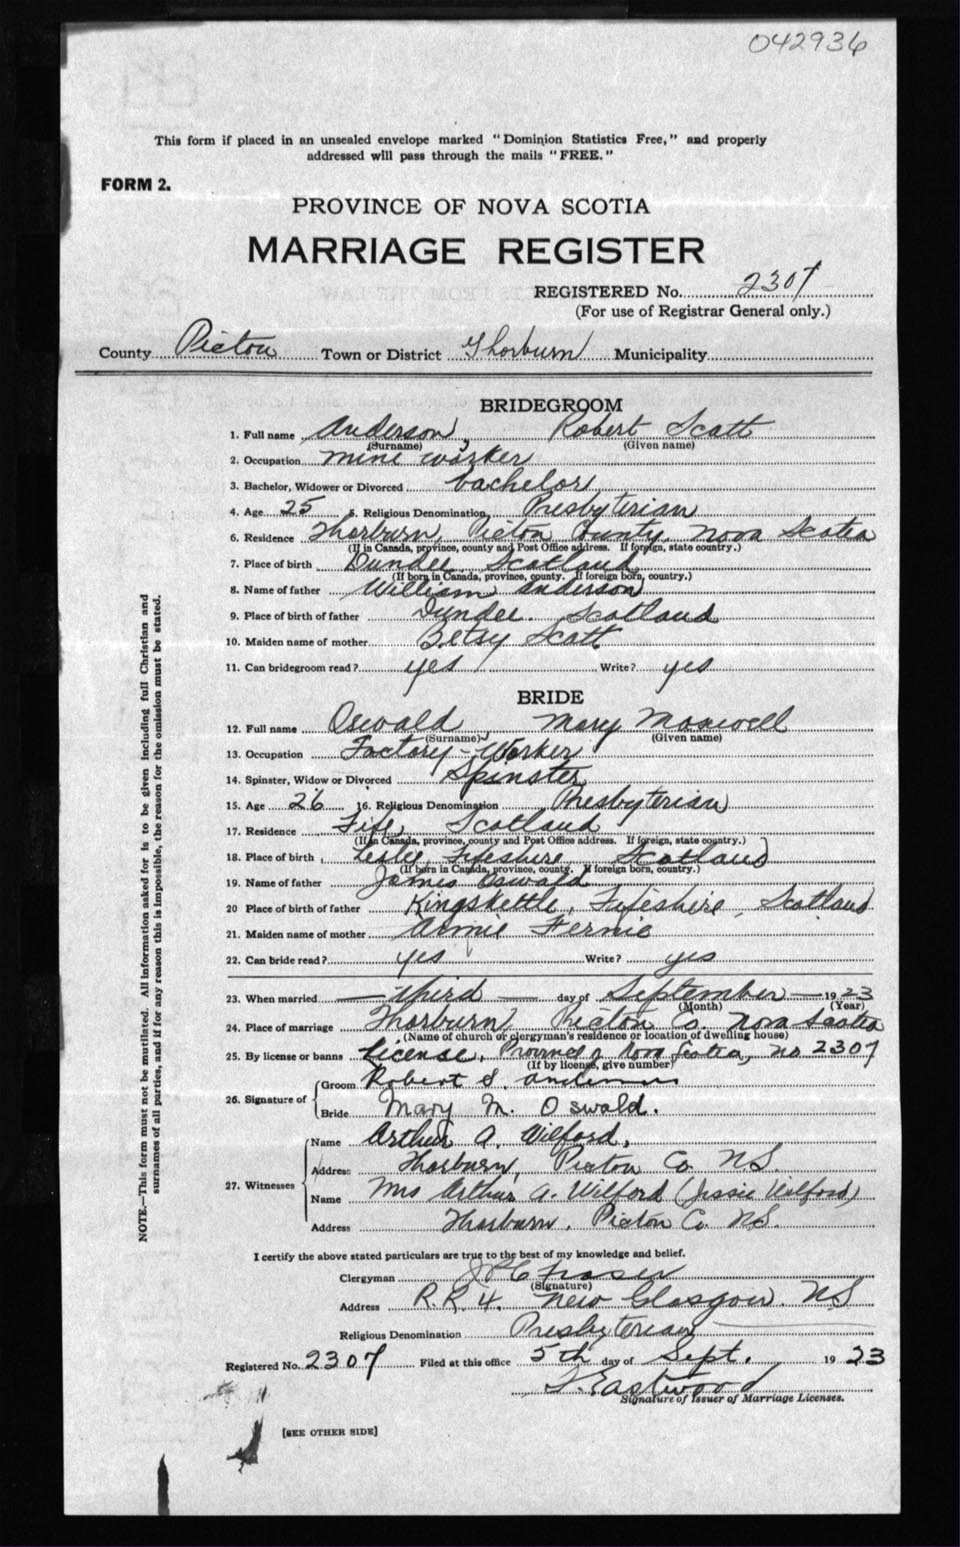 042936
This form if placed in an unsealed envelope marked "Dominion Statistics Free," and properly
addressed will pass through the mails "FREE."
FORM 2.
PROVINCE OF NOVA SCOTIA
MARRIAGE REGISTER
REGISTERED No. 2307
(For use of Registrar General only.)
County Pictou Town or District Thorburn Municipality
BRIDEGROOM
1. Full name Anderson, Robert Scott
(Surname) (Given name)
2. Occupation mine worker
3. Bachelor, Widower or Divorced bachelor
4. Age 25 5. Religious Denomination Presbyterian
6. Residence Thorburn, Pictou County, Nova Scotia
(If in Canada, province, county and Post Office address. If foreign, state country.)
7. Place of birth Dundee Scotland
(If born in Canada, province, county. If foreign born, country.)
8. Name of father William Anderson
9. Place of birth of father Dundee. Scotland
10. Maiden name of mother Betsy Scott
11. Can bridegroom read? yes Write? yes
BRIDE
12. Full name Oswald, Mary Maxwell
(Surname) (Given name)
13. Occupation Factory-Worker
14. Spinster, Widow or Divorced Spinster
15. Age 26 16. Religious Denomination Presbyterian
17. Residence Fife, Scotland
(If in Canada, province, county and Post Office address. If foreign, state country.)
18. Place of birth Leslie, Fifeshire Scotland
(If born in Canada, province, county. If foreign born, country.)
19. Name of father James Oswald
20 Place of birth of father Kingskettle, Fifeshire, Scotland
21. Maiden name of mother Annie Fernie
22. Can bride read? yes Write? yes
23. When married — Third — day of September — 1923
(Month) (Year)
24. Place of marriage Thorburn, Pictou Co. Nova Scotia
(Name of church or clergyman's residence or location of dwelling house)
25. By license or banns License, Province of Nova Scotia, no 2307
(If by license, give number)
26. Signature of Groom Robert S. Anderson
Bride Mary M. Oswald.
27. Witnesses Name Arthur A. Wilford,
Address Thorburn, Pictou Co NS.
Name Mrs Arthur A. Wilford (Jessie Wilford)
Address Thorburn. Pictou Co. NS.
NOTE.—This form must not be mutilated. All information asked for is to be given including full Christian and
surnames of all parties, and if for any reason this is impossible, the reason for the omission must be stated.
I certify the above stated particulars are true to the best of my knowledge and belief.
Clergyman Fraser
(Signature)
Address R.R. 4. New Glasgow. N.S
Religious Denomination Presbyterian
Registered No. 2307 Filed at this office 5th day of Sept. 1923
Eastwood
Signature of Issuer of Marriage Licenses.
[SEE OTHER SIDE]